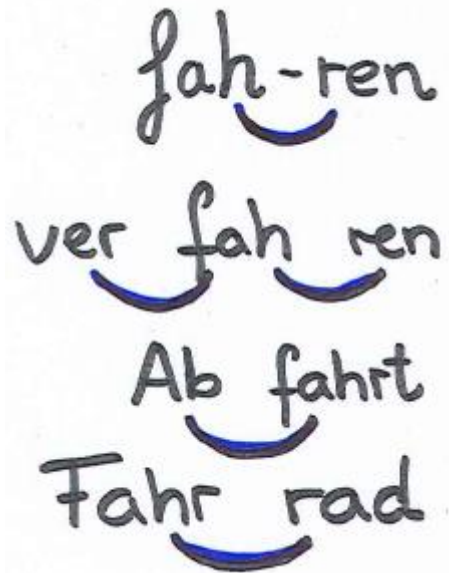 fah-ren
ver fah ren
Ab fahrt
Fahr rad